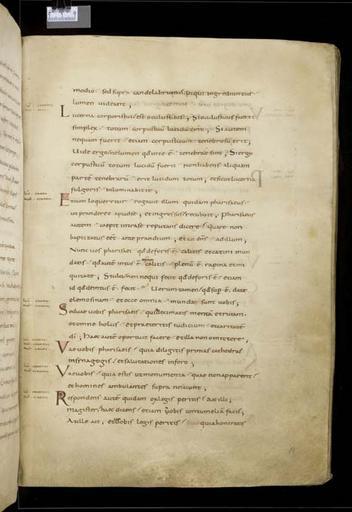 modio sed supra candelabrum ut qui ingrediuntur
lumen uideant;
Lucerna corporis tui est oculus tuus; Si oculus tuus fuerit
simplex totum corpus tuum lucidum erit; Si autem
nequam fuerit etiam corpus tuum tenebrosum erit;
Uide ergo ne lumen quod in te est tenebrae sint; Si ergo
corpus tuum totum lucidum fuerit non habens aliquam
partem tenebrarum erit lucidum totum, et sicut lucerna
fulgoris inluminabit te;
Et cum loqueretur rogauit illum quidam pharisaeus
ut pranderet apud se, et ingressus recubuit; Pharisaeus
autem coepit intra se reputans dicere quare non
baptizatus esset ante prandium; et ait dns ad illum,
Nunc uos pharisaei quod de foris est calicis et catini mun
datis quod autem intus est plenum est rapina et ini
quitate; Stulti nonne qui fecit quod de foris est etiam
id quod de intus est fecit; Uerumtamen quod superest date
elemosinam et ecce omnia munda sunt uobis;
Sed uae uobis pharisaeis qui decimatis mentam et rutam
et omne holus et praeteritis iudicium et caritatem
di; Haec autem oportuit facere et illa non omittere;
Vae uobis pharisaeis quia diligitis primas cathedras
in synagogis et salutationes in foro;
Vae uobis quia estis ut monumenta quae non parent
et homines ambulantes supra nesciunt;
Respondens autem quidam ex legis peritis ait illi,
magister haec dicens etiam nobis contumeliam facis,
At ille ait, et uobis legis peritis uae quia honeratis